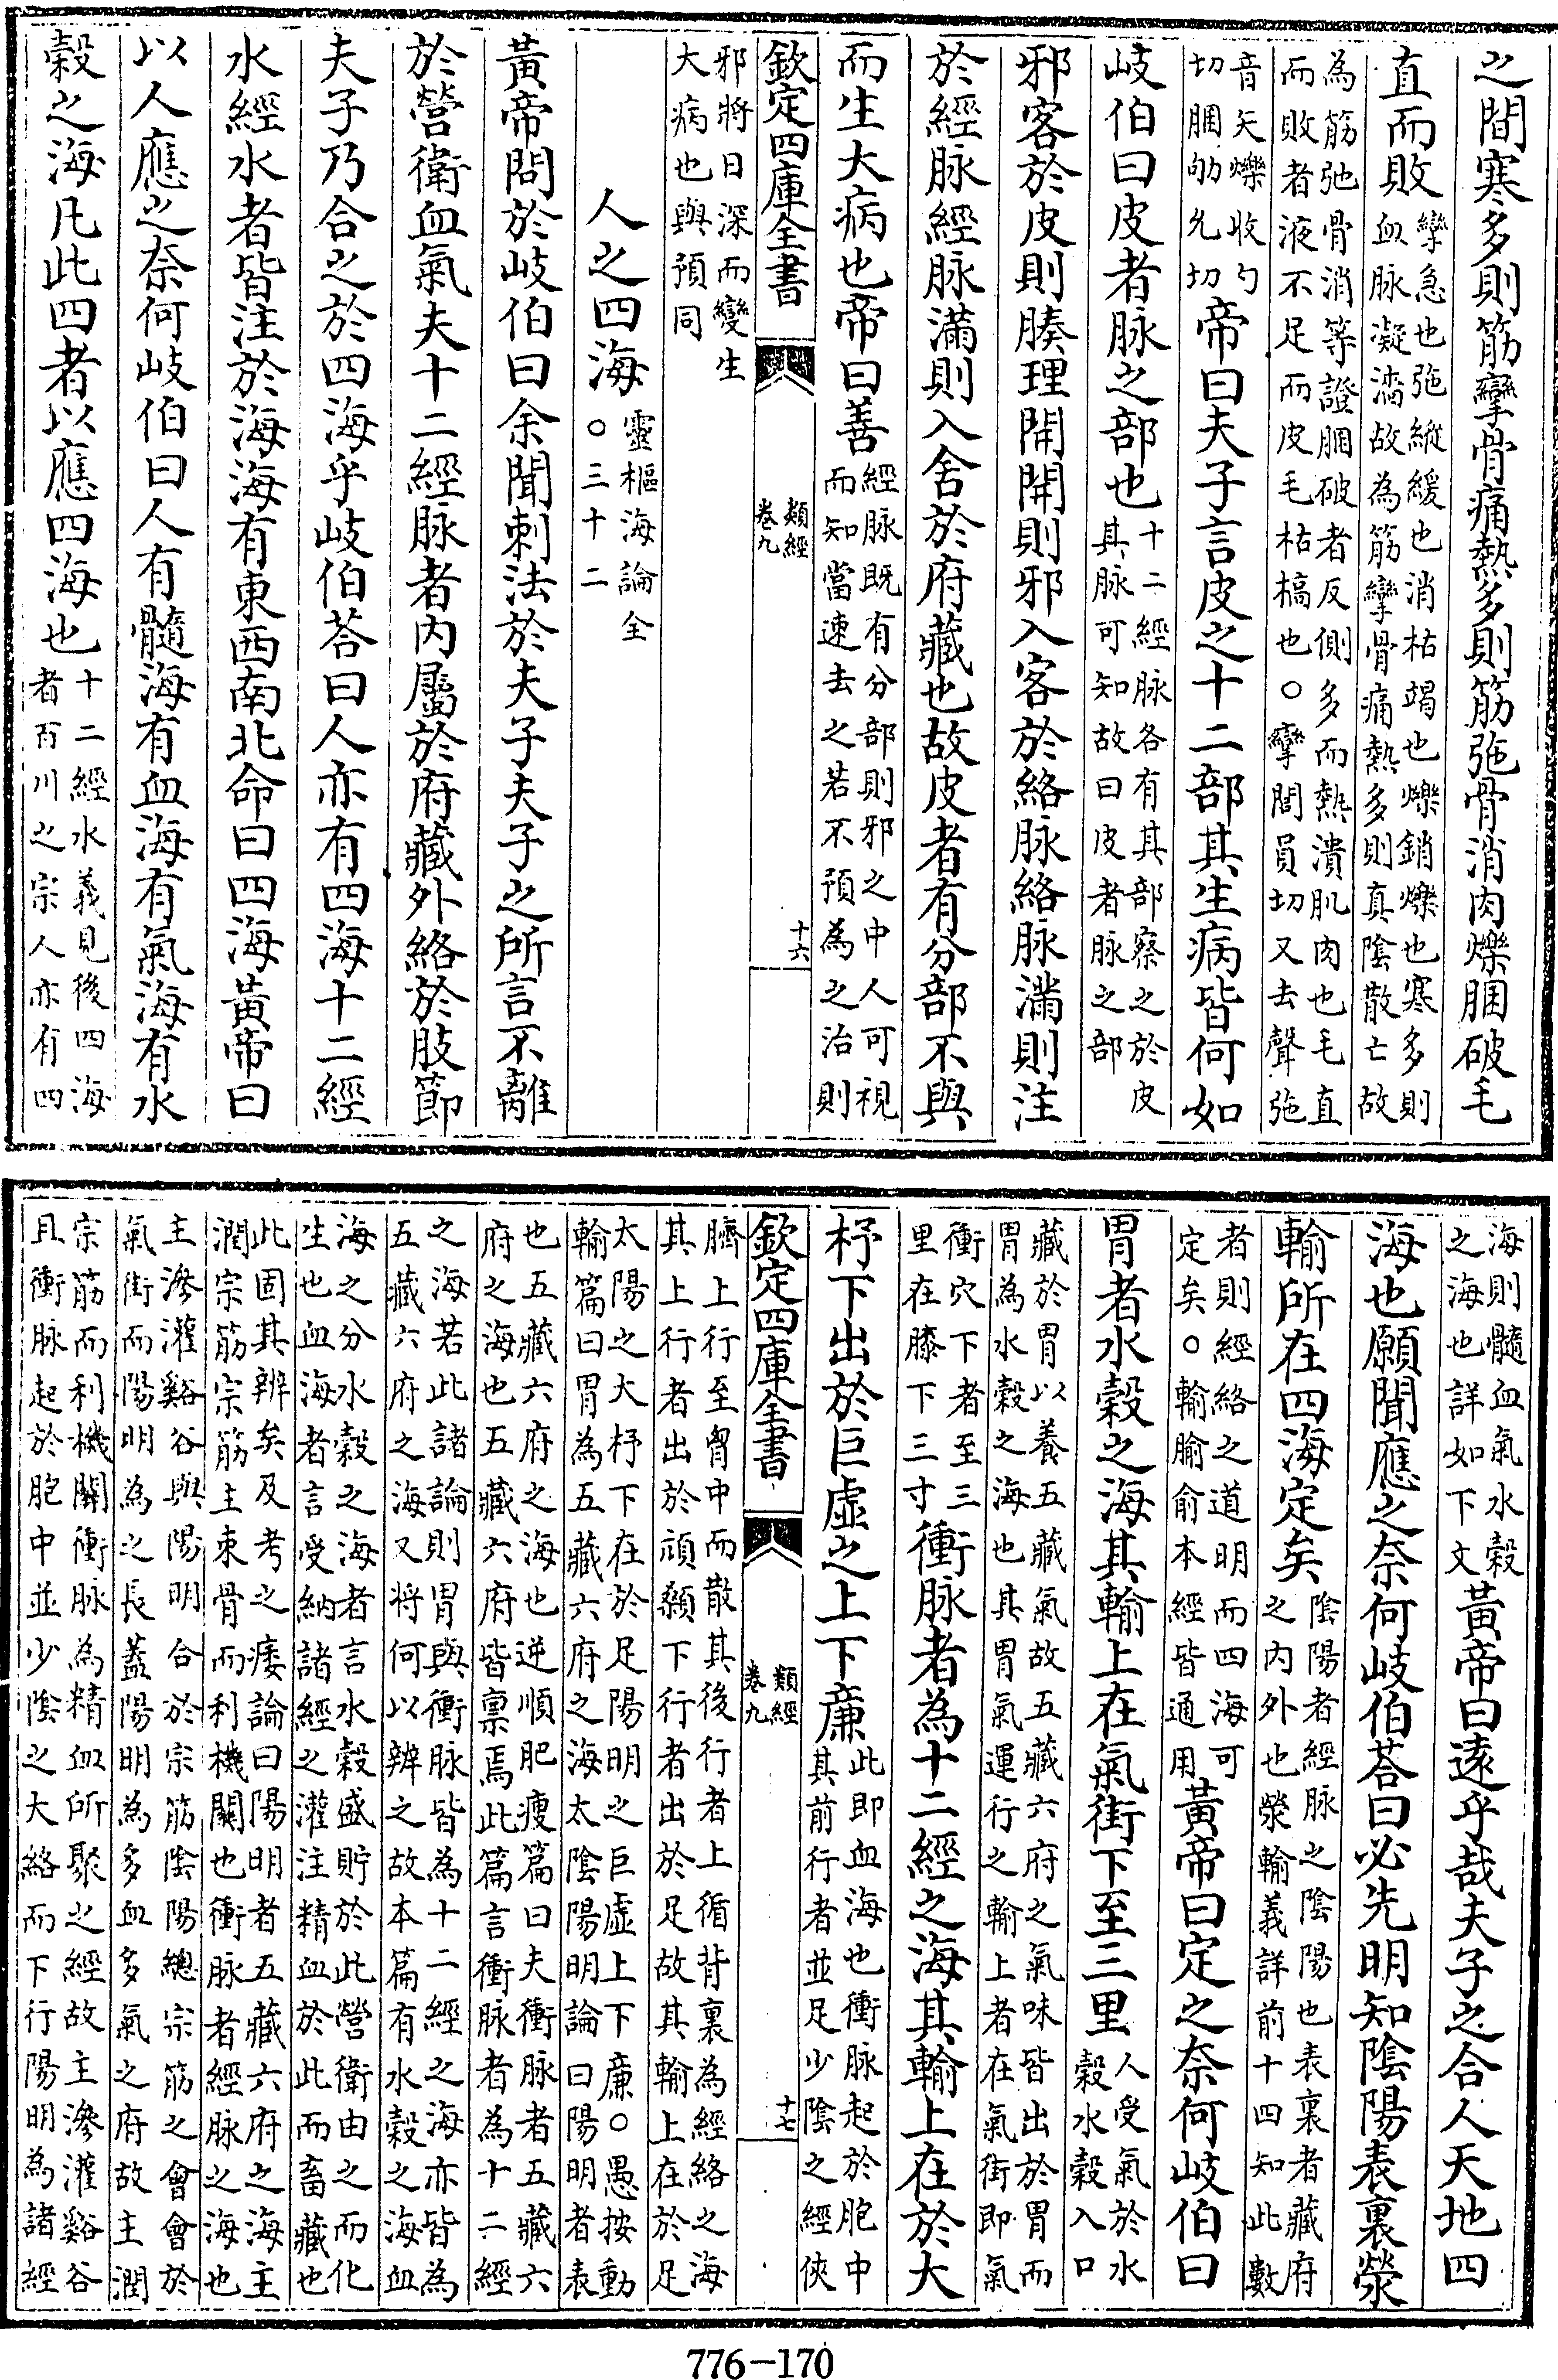 之間寒多則筋攣骨痛熱多則筋弛骨消肉爍䐃破毛
直而敗攣急也弛縱緩也消枯竭也爍銷爍也寒多則
血脉凝濇故為筋攣骨痛熱多則真隂散亡故
為筋弛骨消等證䐃破者反側多而熱潰肌肉也毛直
而敗者液不足而皮毛枯槁也○攣閭員切又去聲弛
音矢爍收勺
切䐃劬允切帝曰夫子言皮之十二部其生病皆何如
岐伯曰皮者脉之部也十二經脉各有其部察之於皮
其脉可知故曰皮者脉之部
邪客於皮則腠理開開則邪入客於絡脉絡脉滿則注
於經脉經脉滿則入舍於府藏也故皮者有分部不與
而生大病也帝曰善經脉既有分部則邪之中人可視
而知當速去之若不預為之治則
欽定四庫全書
類經
卷九
十六
邪將日深而變生
大病也與預同
人之四海靈樞海論全
○三十二
黃帝問於岐伯曰余聞刺法於夫子夫子之所言不離
於營衛血氣夫十二經脉者内屬於府藏外絡於肢節
夫子乃合之於四海乎岐伯荅曰人亦有四海十二經
水經水者皆注於海海有東西南北命曰四海黃帝曰
以人應之奈何岐伯曰人有髓海有血海有氣海有水
穀之海凡此四者以應四海也十二經水義見後四海
者百川之宗人亦有四
海則髓血氣水穀
之海也詳如下文黃帝曰遠乎哉夫子之合人天地四
海也願聞應之奈何岐伯荅曰必先明知隂陽表裏滎
輸所在四海定矣隂陽者經脉之隂陽也表裏者藏府
之内外也滎輸義詳前十四知此數
者則經絡之道明而四海可
定矣○輸腧俞本經皆通用黃帝曰定之奈何岐伯曰
胃者水穀之海其輸上在氣街下至三里人受氣於水
穀水穀入口
藏於胃以養五藏氣故五藏六府之氣味皆出於胃而
胃為水穀之海也其胃氣運行之輸上者在氣街即氣
衝穴下者至三
里在膝下三寸衝脉者為十二經之海其輸上在於大
杼下出於巨虛之上下廉此即血海也衝脉起於胞中
其前行者並足少隂之經俠
欽定四庫全書
類經
卷九
十七
臍上行至胷中而散其後行者上循背裏為經絡之海
其上行者出於頏顙下行者出於足故其輸上在於足
太陽之大杼下在於足陽明之巨虛上下廉○愚按動
輸篇曰胃為五藏六府之海太隂陽明論曰陽明者表
也五藏六府之海也逆順肥瘦篇曰夫衝脉者五藏六
府之海也五藏六府皆稟焉此篇言衝脉者為十二經
之海若此諸論則胃與衝脉皆為十二經之海亦皆為
五藏六府之海又將何以辨之故本篇有水穀之海血
海之分水穀之海者言水穀盛貯於此營衛由之而化
生也血海者言受納諸經之灌注精血於此而畜藏也
此固其辨矣及考之痿論曰陽明者五藏六府之海主
潤宗筋宗筋主束骨而利機關也衝脉者經脉之海也
主滲灌谿谷與陽明合於宗筋隂陽總宗筋之會會於
氣街而陽明為之長蓋陽明為多血多氣之府故主潤
宗筋而利機關衝脉為精血所聚之經故主滲灌谿谷
且衝脉起於胞中並少隂之大絡而下行陽明為諸經
776-170